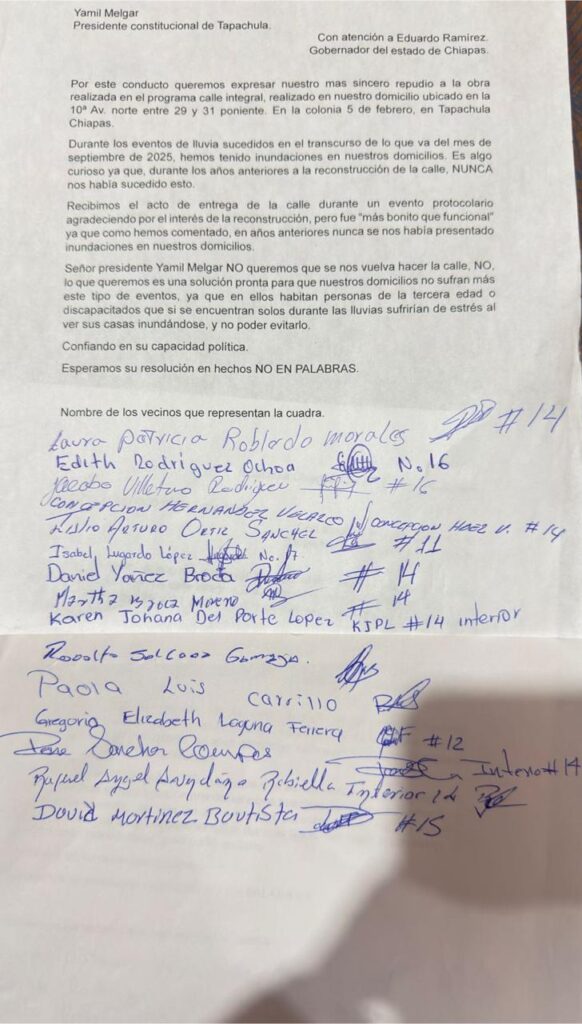 Yamil Melgar
Presidente constitucional de Tapachula.
Con atención a Eduardo Ramírez.
Gobernador del estado de Chiapas.
Por este conducto queremos expresar nuestro mas sincero repudio a la obra
realizada en el programa calle integral, realizado en nuestro domicilio ubicado en la
10ª Av. norte entre 29 y 31 poniente. En la colonia 5 de febrero, en Tapachula
Chiapas.
Durante los eventos de lluvia sucedidos en el transcurso de lo que va del mes de
septiembre de 2025, hemos tenido inundaciones en nuestros domicilios. Es algo
curioso ya que, durante los años anteriores a la reconstrucción de la calle, NUNCA
nos había sucedido esto.
Recibimos el acto de entrega de la calle durante un evento protocolario
agradeciendo por el interés de la reconstrucción, pero fue "más bonito que funcional"
ya que como hemos comentado, en años anteriores nunca se nos había presentado
inundaciones en nuestros domicilios.
Señor presidente Yamil Melgar NO queremos que se nos vuelva hacer la calle, NO,
lo que queremos es una solución pronta para que nuestros domicilios no sufran más
este tipo de eventos, ya que en ellos habitan personas de la tercera edad o
discapacitados que si se encuentran solos durante las lluvias sufrirían de estrés al
ver sus casas inundándose, y no poder evitarlo.
Confiando en su capacidad política.
Esperamos su resolución en hechos NO EN PALABRAS.
Nombre de los vecinos que representan la cuadra.
Laura Patricia Robledo Morales #14
Edith Rodríguez Ochoa No.16
Jacobo Rodríguez #16
CONCEPCION HERNANDEZ VELAZCO CONCEPCION HDEZ V. #14
ARTURO ORTIZ SANCHEZ #11
Isabel Lugardo López No. 17
Daniel Yañez Broca #14
Martha Moreno #14
Karen Johana Del Porte Lopez KJPL #14 interior
Rodolfo
Paola Luis Carrillo
Gregoria Elizabeth Laguna Ferrera #12
Sanchez Interior #14
Rafael Angel Interior 14
David Martinez Bautista #15